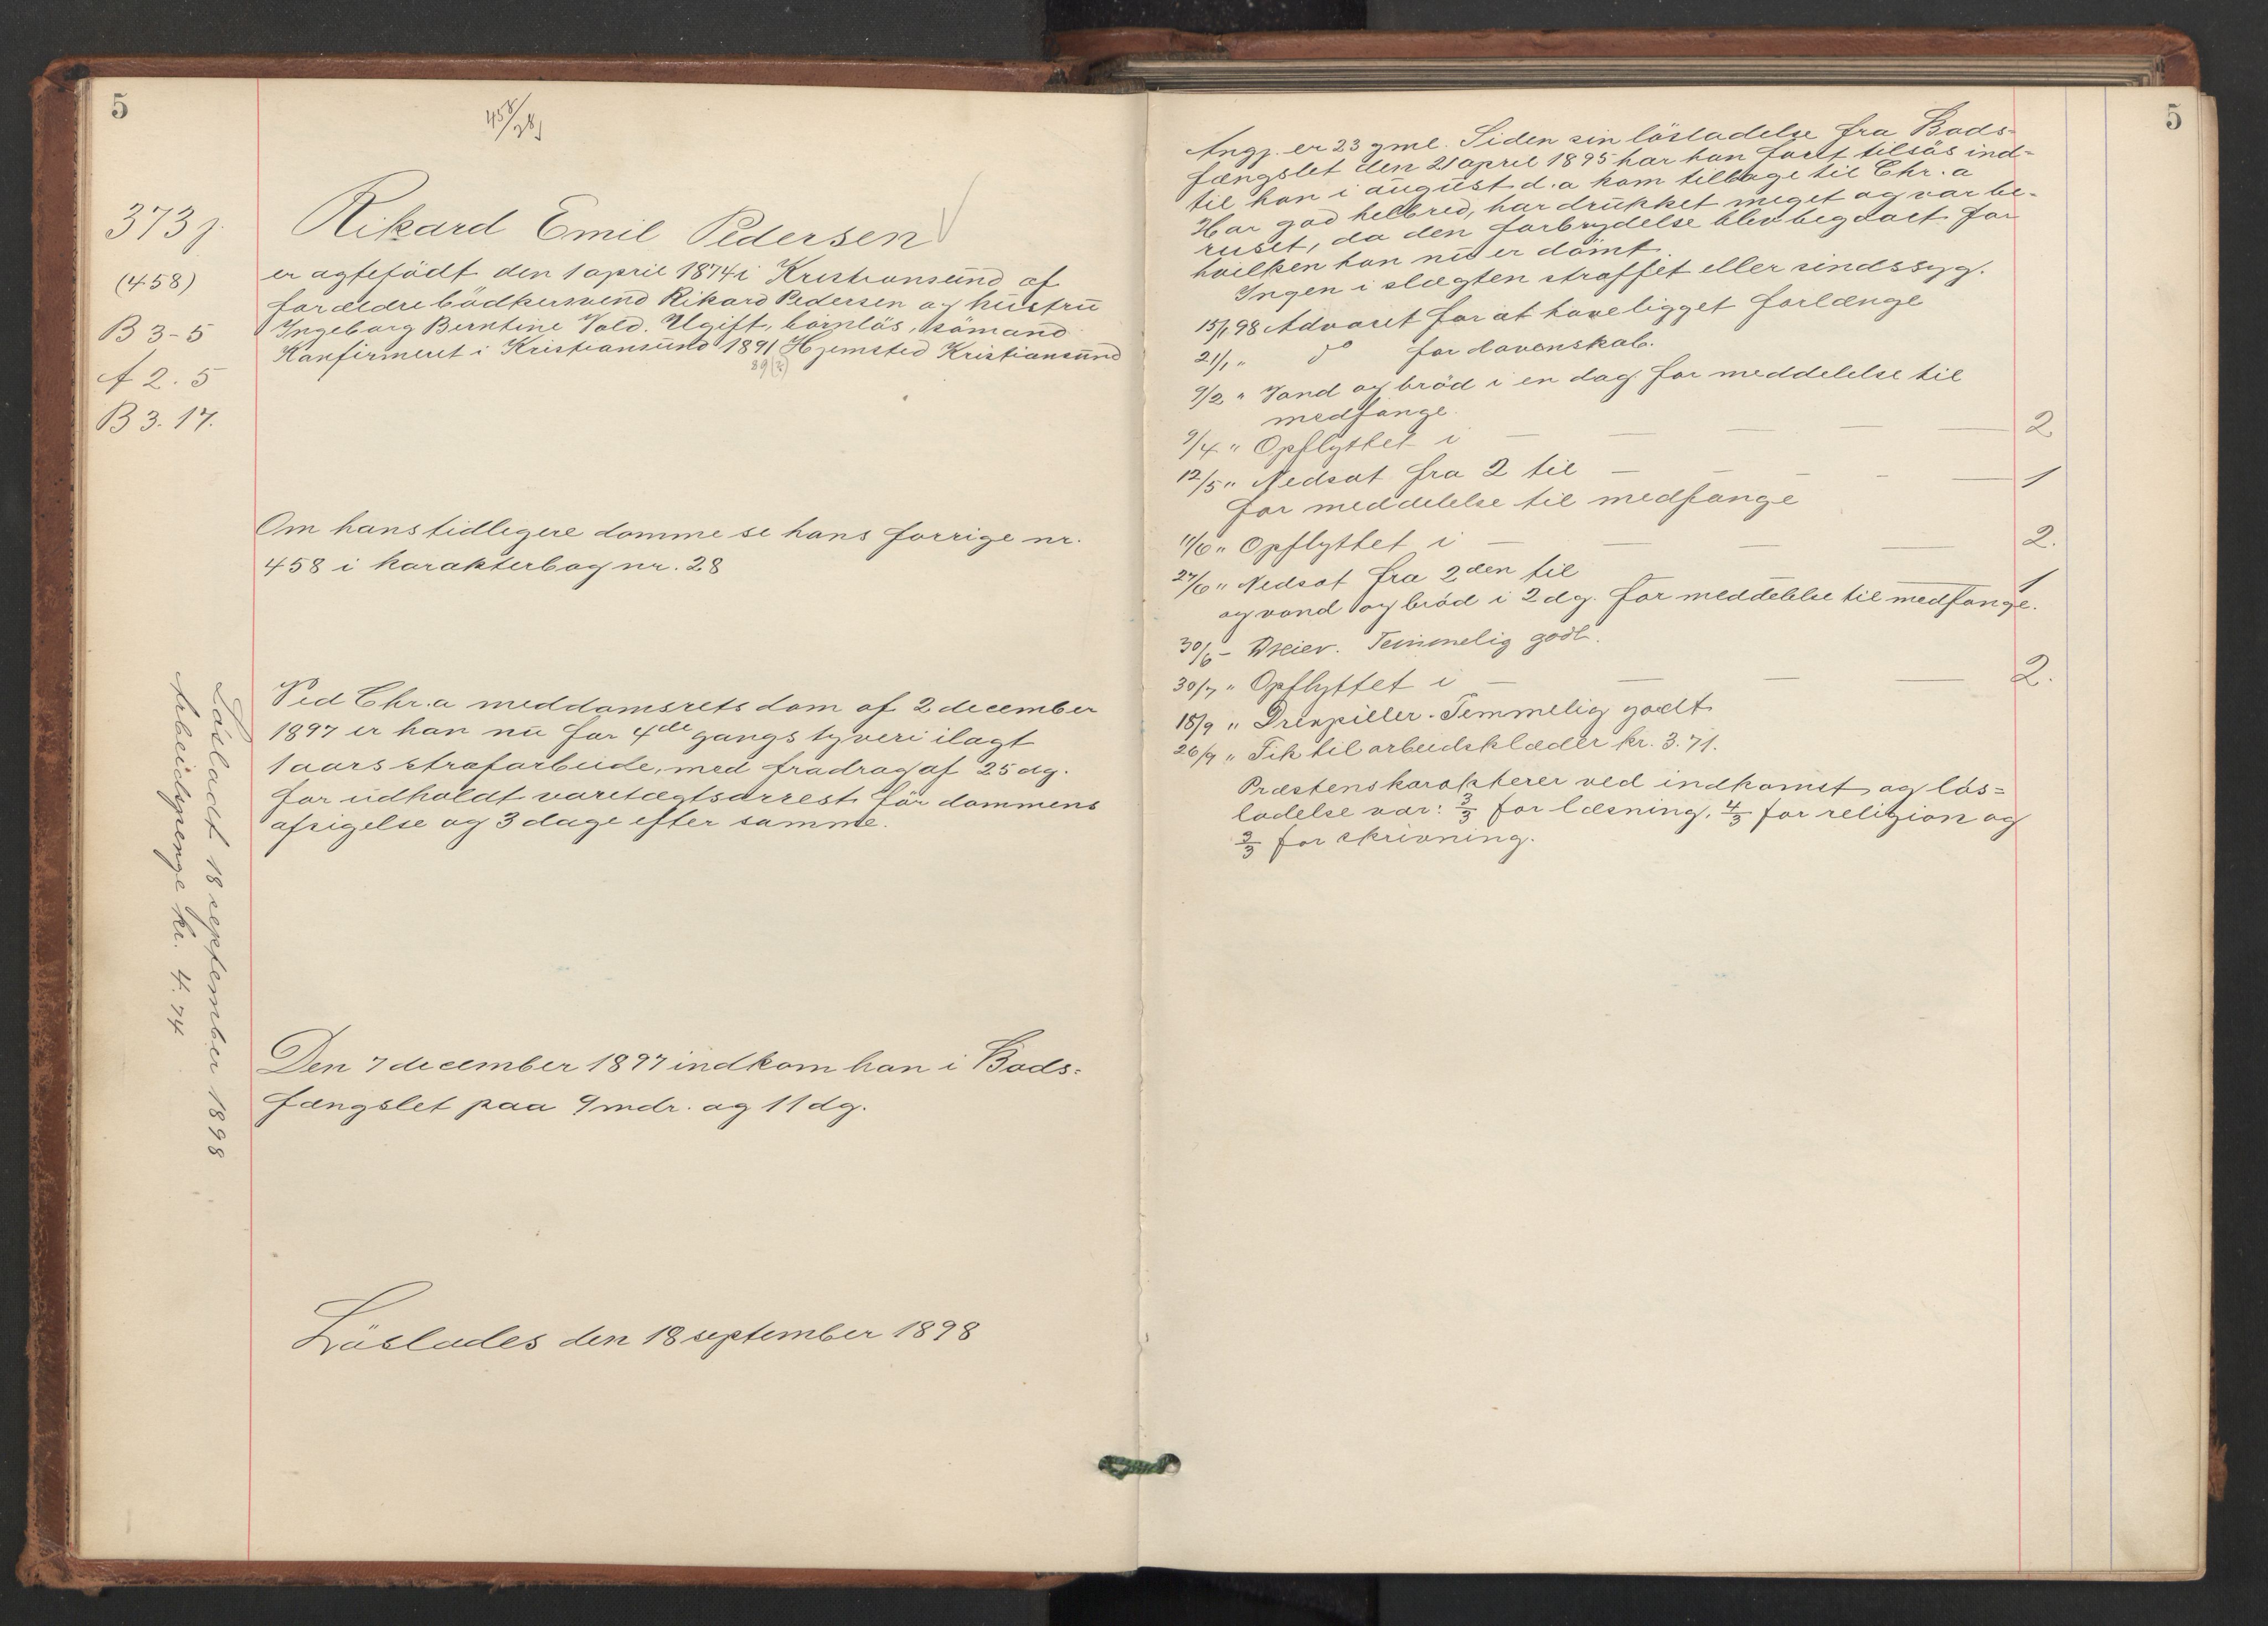 5
458/28
373 j.
(458)
B 3-5
A 2. 5
B 3. 17.
Rikard Emil Pedersen
er ægtefödt den 1 april 1874 i Kristiansund af
forældre bödkersvend Rikard Pedersen og hustru
Ingeborg Berntine Vold. Ugift, börnlös, sömand
Konfirmeret i Kristiansund 1891 Hjemsted Kristiansund
Om hans tidligere domme se hans forrige nr.
458 i karakterbog nr. 28
Ved Chr.a meddomsrets dom af 2 december
1897 er han nu for 4de gangs tyveri ilagt
1 aars strafarbeide, med fradrag af 25 dg.
for udholdt varetægtsarrest för dommens
afsigelse og 3 dage efter samme.
Den 7 december 1897 indkom han i Bods-
fængslet paa 9 mdr. og 11 dg.
Löslades den 18 september 1898
Lösladt 18 september 1898
Arbeidspenge kr. 4.74
5
Angj. er 23 gml. Siden sin lösladelse fra Bods-
fængslet den 21 april 1895 har han faret tilsös ind-
til han i august d.a kom tilbage til Chr.a
Har god helbred, har drukket meget og var be-
ruset, da den forbrydelse blev begaaet for
hvilken han nu er dömt.
Ingen i slægten straffet eller sindssyg.
15/1 98 Advaret for at have ligget forlænge
21/1 " do for dovenskab.
9/2 " Vand og bröd i en dag for meddelelse til
medfange.
9/4 " Opflyttet i — — — — — 2
12/5 " Nedsat fra 2 til — — — — — 1
for meddelelse til medfange
11/6 " Opflyttet i — — — — 2.
27/6 " Nedsat fra 2den til — — — 1
og vand og bröd i 2 dg. for meddelelse til medfange.
30/6 - Temmelig godt.
30/7 " Opflyttet i — — — — 2.
18/9 " Temmelig godt
26/9 " Fik til arbeidsklæder kr. 3.71.
Præstens karakterer ved indkomst og lös-
ladelse var: 3/3 for læsning, 4/3 for religion og
3/3 for skrivning.